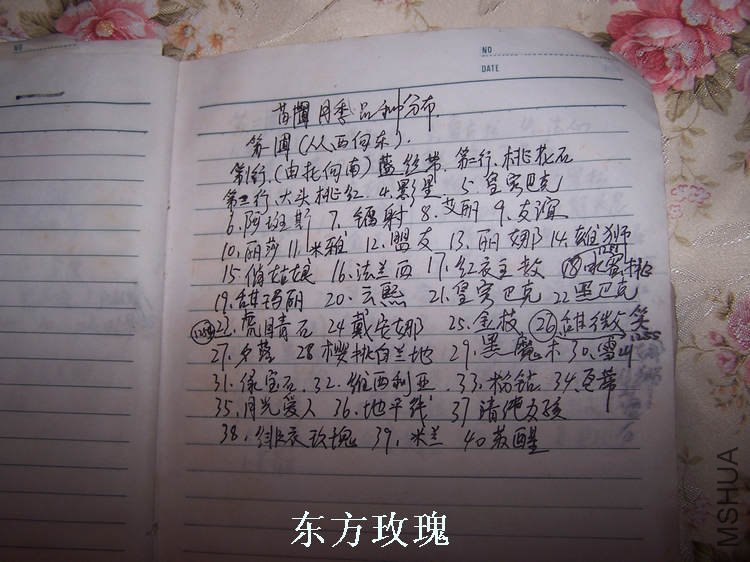 NO
NO
DATE
苗圃月季品种分布
第一圃(从西向东).
第1行.(由北向南)蓝丝带. 第二行.桃花石
第三行.大头桃红. 4.影星 5.皇家巴克
6.阿班斯 7.镭射 8.艾丽 9.友谊
10.丽莎 11.米雅 12.盟友 13.丽娜 14.雄狮
15.俏姑娘 16.法兰西 17.红衣主教 18.水蜜桃
19.甜玛丽 20.云熙 21.皇家巴克 22.黑巴克
23.虎睛石 24.戴安娜 25.金枝 26.甜微笑
27.夕落 28.樱桃白兰地 29.黑魔术 30.雪山
31.绿宝石 32.维西利亚 33.粉钻 34.
35.月光爱人 36.地平线 37.清纯女孩
38.绯衣玫瑰 39.米兰 40.苏醒
东方玫瑰
MSHUA